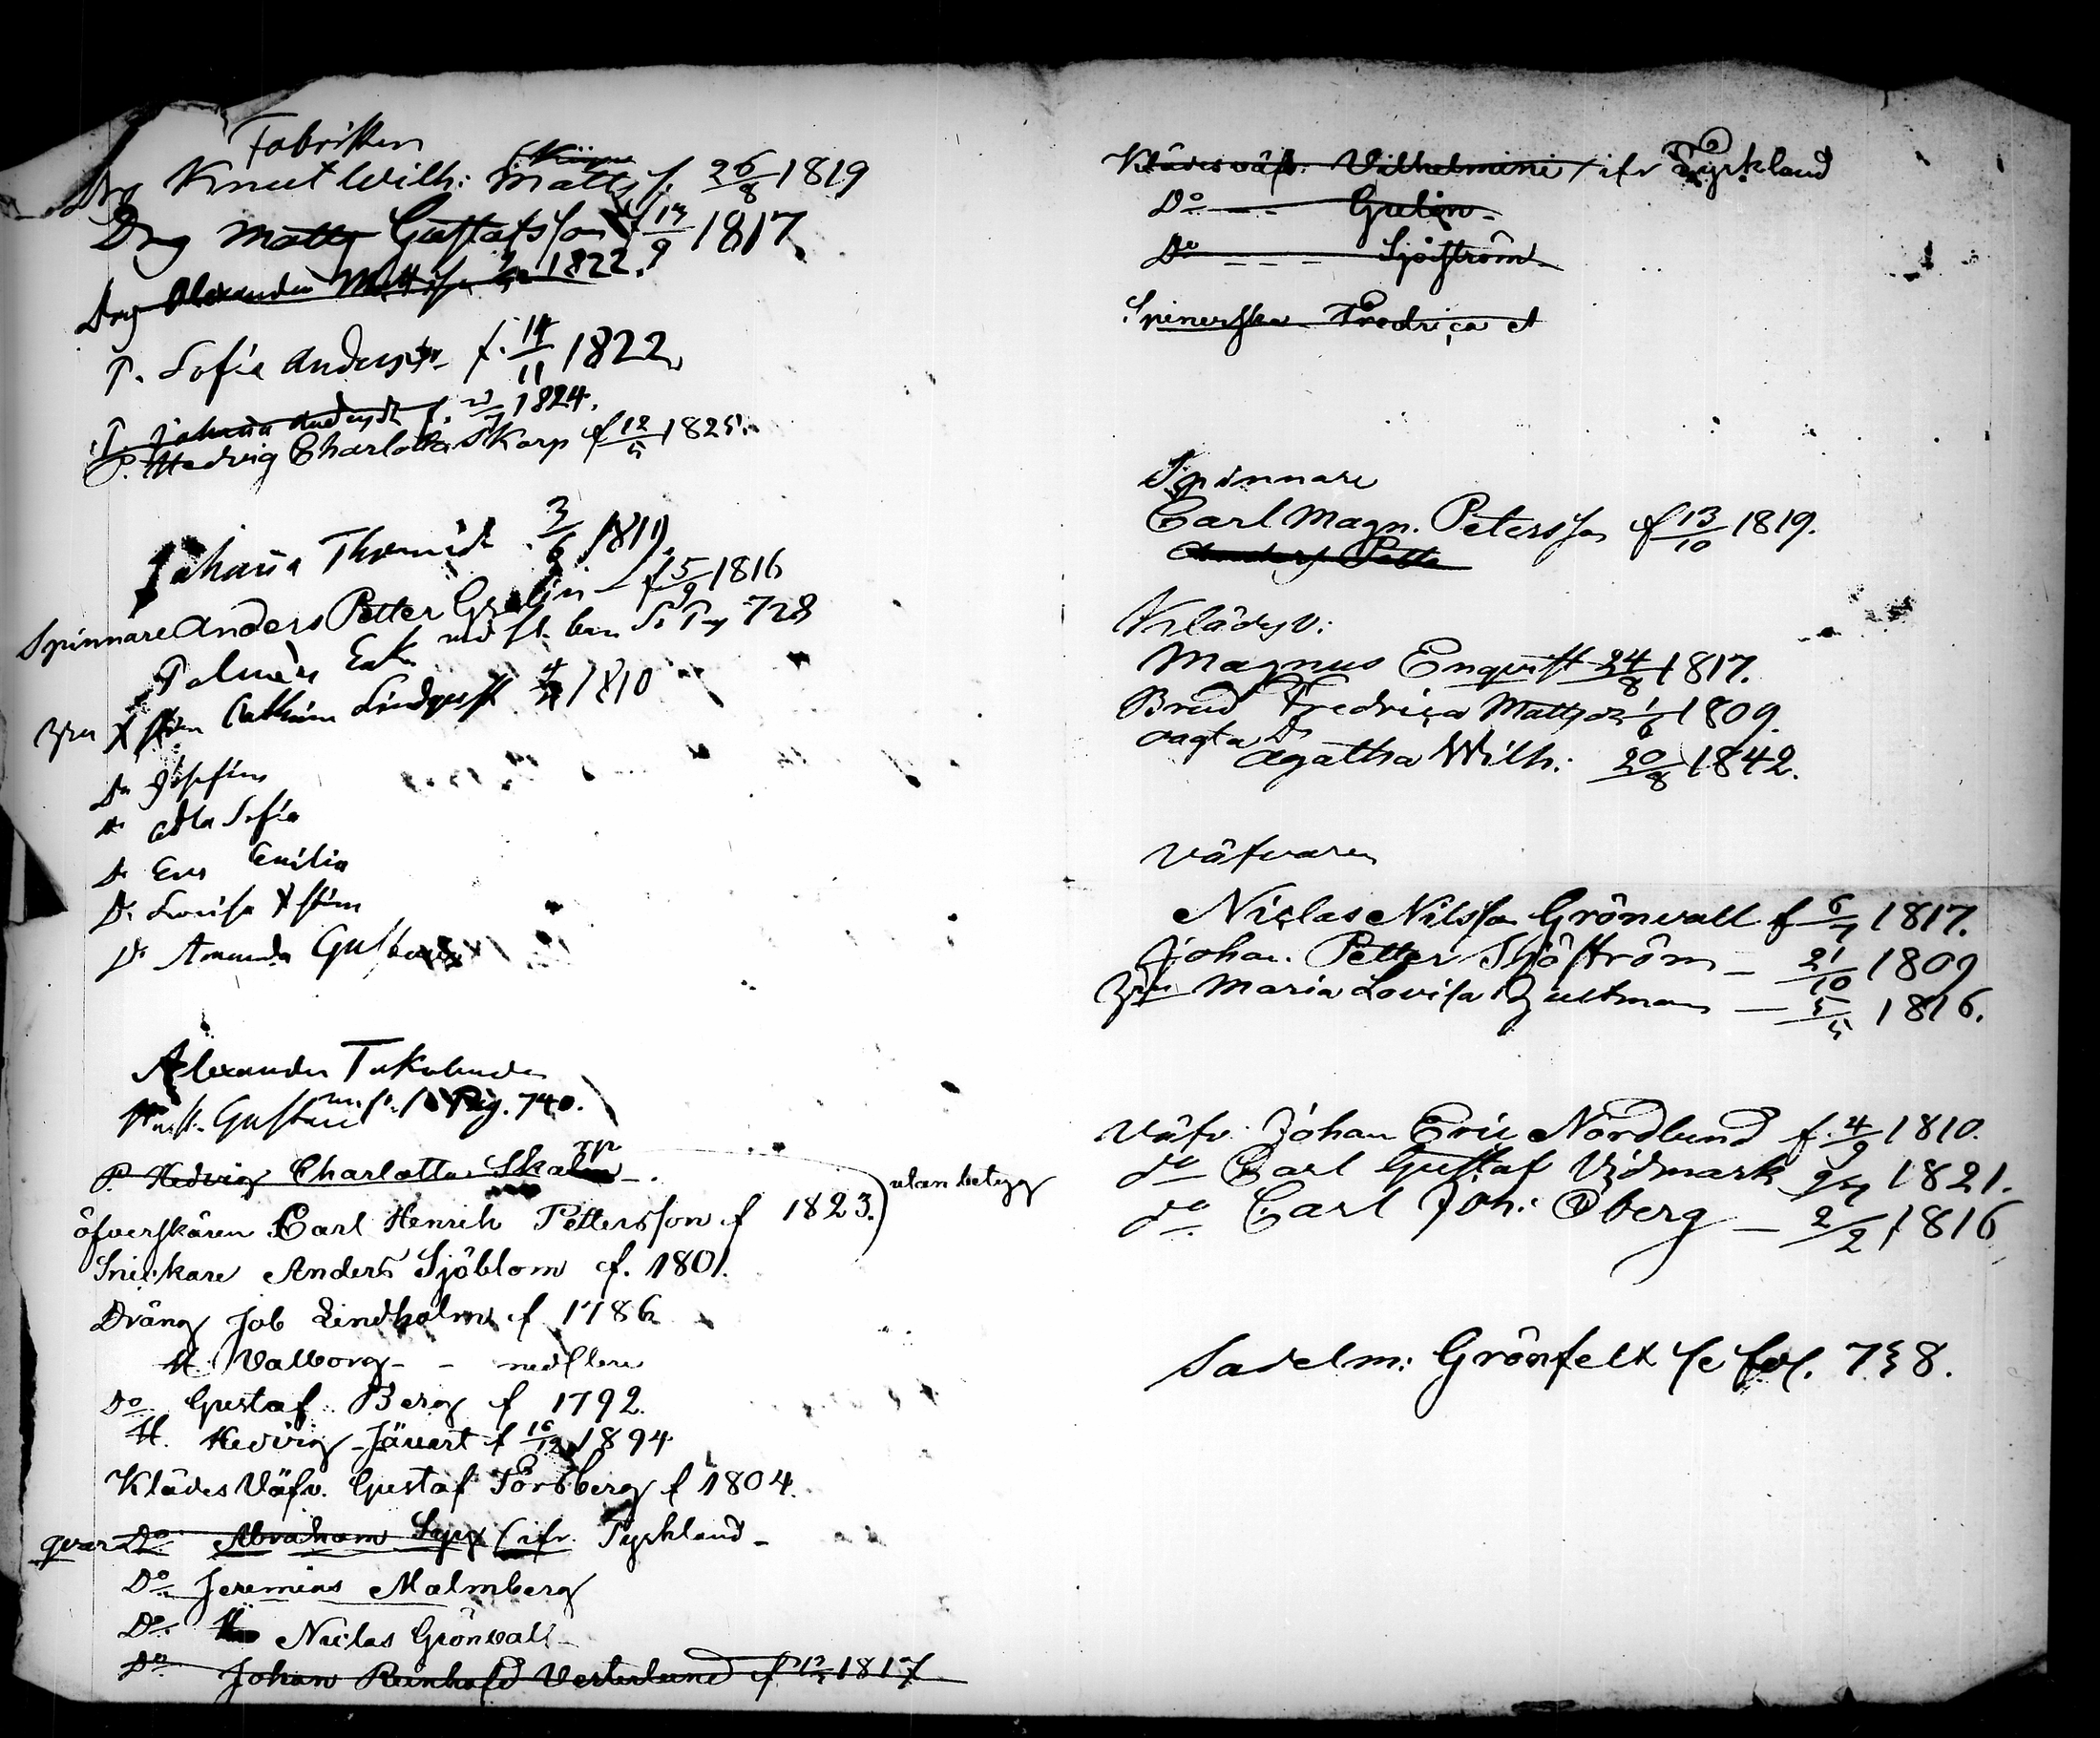 Fabriken
Drg Knut Wilh: Matts f. 26/8 1819
Drg Matts Gustafsson f 13/9 1817
Drg Alexander Matts 1822.
P. Sofia Andersdr f. 14/11 1822
P. Johanna Andersdr f. 1824.
P. Hedvig Charlotta Skarp f 12/5 1825.
Johanna Thomasdr 3/6 1819
Spinnare Anders Petter Grelin f 15/9 1816
Palmén Enk 728
Cathrina Lindqvist 1810
Do Josefina
Do Adla Sofia
Do Eva Emilia
Do Lovisa
Do Amanda Gustava
Alexander
Gustava Pag. 740.
P. Hedvig Charlotta Skarp
öfverskären Carl Henrik Pettersson f 1823.) utan betyg
Snickare Anders Sjöblom f. 1801.
Dräng Job Lindholm f 1786
H. Valborg - - med flere
Do Gustaf Berg f 1792.
H. Hedvig f 16/12 1894
Klädes Väfv. Gustaf Forsberg f 1804.
qvar Do Abraham (ifr. Tyskland -
Do Jeremias Malmberg
Do Niclas Grönvall
Do Johan Reinhold Vesterlund f 1817
Klädesväfv. Vilhelmini / ifr Tyskland
Do - - Grelin -
Do - - - Sjöström -
Spinerska Fredrica
Spinnare
Carl Magn. Petersson f 13/10 1819.
Klädesv:
Magnus Enqvist 24/8 1817.
Fredrica Mattsdr 1/6 1809.
Agatha Wilh: 20/8 1842.
Väfvaren
Niclas Nilsson Grönvall f 6/7 1817.
Johan Petter Sjöström - 21/10 1809
Maria Lovisa Zultman - 5/5 1816.
Väfv. Johan Eric Nordlund f. 4/9 1810.
do Carl Gustaf Vidmark 1821.
do Carl Joh: Öberg - 2/2 1816
Sadelm: Grönfelt se fol. 738.